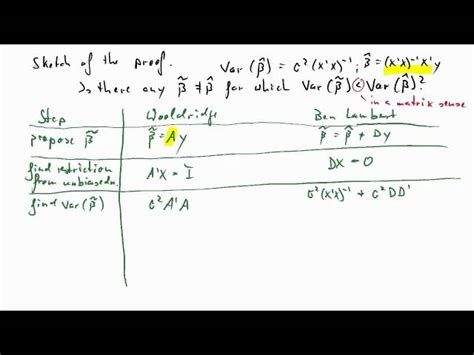 Sketch of the proof. Var(β̂) = σ²(X'X)⁻¹; β̂ = (X'X)⁻¹X'y
Is there any β̃ ≠ β̂ for which Var(β̃) < Var(β̂)?
in a matrix sense
Step Wooldridge Ben Lambert
propose β̃ β̃ = Ay β̃ = β̂ + Dy
find restriction
from unbiasedn. A'X = I DX = 0
find Var(β̃) σ²A'A σ²(X'X)⁻¹ + σ²DD'